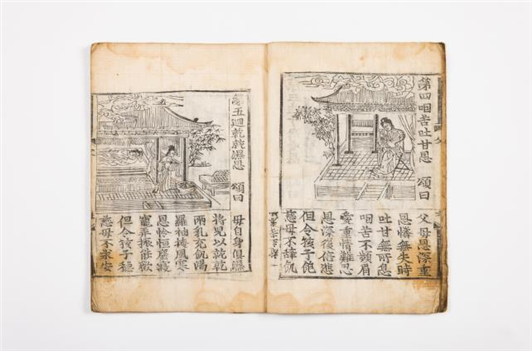 第四咽苦吐甘恩 頌曰
父母恩深重
恩情無失時
吐甘無所息
咽苦不顰眉
愛重情難忍
恩深復倍悲
但令孩子飽
慈母不辭飢
第五廻乾就濕恩 頌曰
母自身俱濕
將兒以就乾
兩乳充飢渴
羅袖掩風寒
恩憐恒廢寢
寵弄振能歡
但令孩子穩
慈母不求安